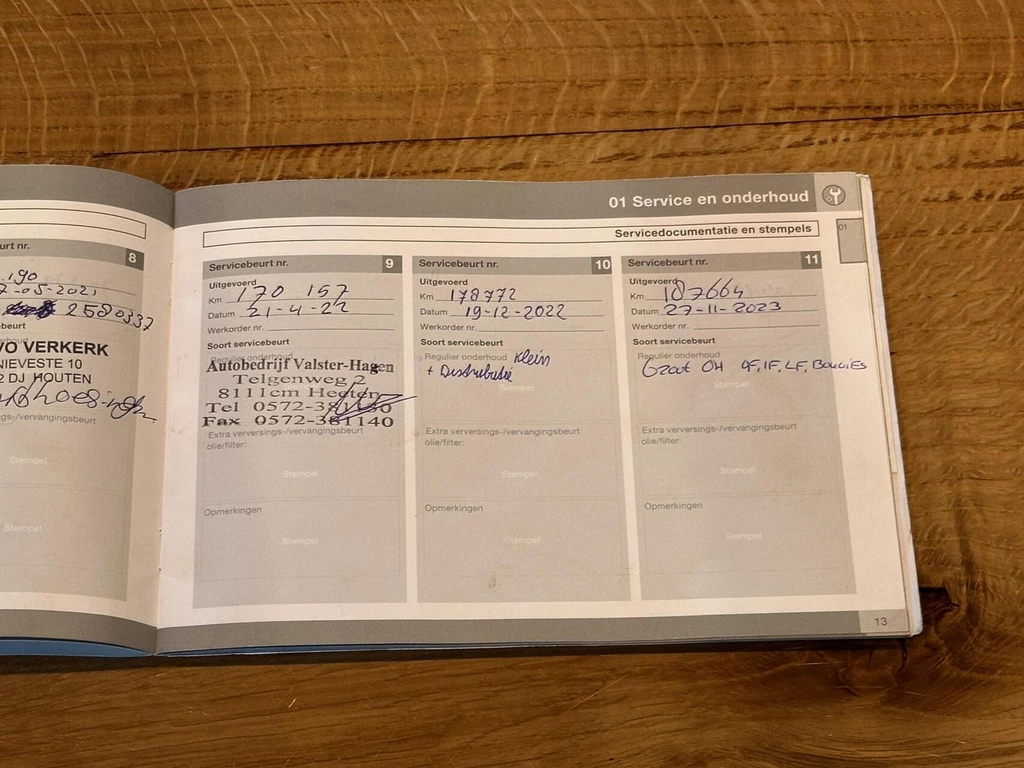 01 Service en onderhoud
01
Servicedocumentatie en stempels
urt nr. 8
.190
-05-2021
2580337
beurt
VO VERKERK
NIEVESTE 10
2 DJ HOUTEN
gs-/vervangingsbeurt
Stempel
Stempel
Servicebeurt nr. 9
Uitgevoerd
Km 170 157
Datum 21-4-22
Werkorder nr.
Soort servicebeurt
Regulier onderhoud
Autobedrijf Valster-Hagen
Telgenweg 2
8111cm Heeten
Tel 0572-381
Fax 0572-381140
Extra verversings-/vervangingsbeurt
olie/filter:
Stempel
Opmerkingen
Stempel
Servicebeurt nr. 10
Uitgevoerd
Km 178772
Datum 19-12-2022
Werkorder nr.
Soort servicebeurt
Regulier onderhoud Klein
+ Distributie
Stempel
Extra verversings-/vervangingsbeurt
olie/filter:
Stempel
Opmerkingen
Stempel
Servicebeurt nr. 11
Uitgevoerd
Km 187664
Datum 27-11-2023
Werkorder nr.
Soort servicebeurt
Regulier onderhoud
Groot OH OF, IF, LF, Bougies
Stempel
Extra verversings-/vervangingsbeurt
olie/filter:
Stempel
Opmerkingen
Stempel
13